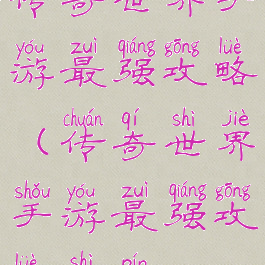 传奇世界手
yóu zuì qiáng gōng lüè
游最强攻略
chuán qí shì jiè
（传奇世界
shǒu yóu zuì qiáng gōng
手游最强攻
lüè shì pín